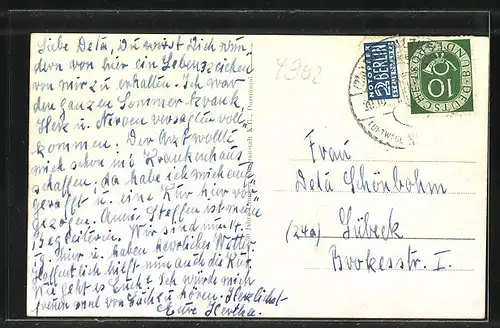 Liebe Deta, Du wirst Dich wun-
dern von hier ein Lebenszeichen
von mir zu erhalten. Ich war
den ganzen Sommer krank
Herz u. Nerven versagten voll
kommen. Der Arzt wollte
mich schon ins Krankenhaus
schaffen, da habe ich mich auf-
gerafft u. eine Kur hier vor-
gezogen. Anni Steffen ist meine
Begleiterin. Wir sind nun 14
T. hier u. haben herrliches Wetter
Hoffentlich hilft nun auch die Kur.
Wie geht es Euch? Ich würde mich
freuen mal von Euch zu hören. Herzlichst
Eure Hertha.
4952
NOTOPFER
2 BERLIN
STEUERMARKE
DEUTSCHE BUNDESPOST
10
Frau
Deta Schönbohm
(24a) Lübeck
Brokesstr. I.